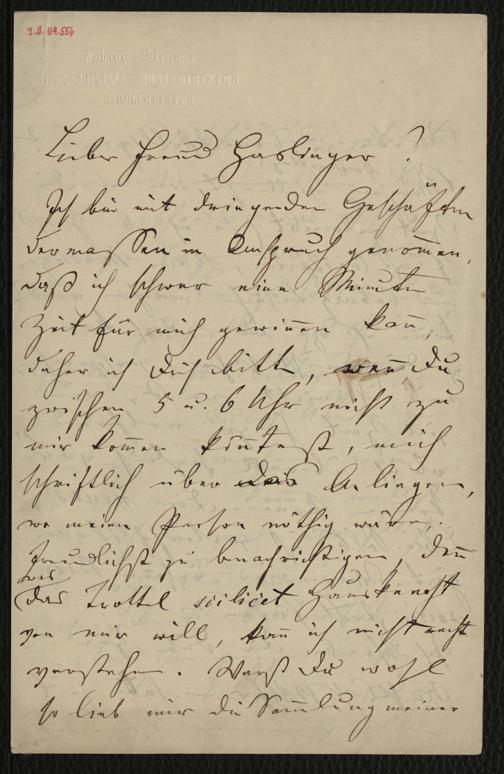 J.N. 119.556
Johann Strauss
K. K. HOFBALL-MUSIKDIREKTOR
Lieber Freund Haslinger!
Ich bin mit dringenden Geschäften
dermassen in Anspruch genommen,
daß ich schwer eine Minute
Zeit für mich gewinnen kann,
daher ich Dich bitte, wenn Du
zwischen 5 u. 6 Uhr nicht zu
mir kommen könntest, mich
schriftlich über das Anliegen,
wo meine Person nöthig wäre,
freundlichst zu benachrichtigen, denn
was
(das Trottel scilicet Hausknecht
von mir will, kann ich nicht recht
verstehen. Warst Du wohl
so lieb mir die Sammlung meiner